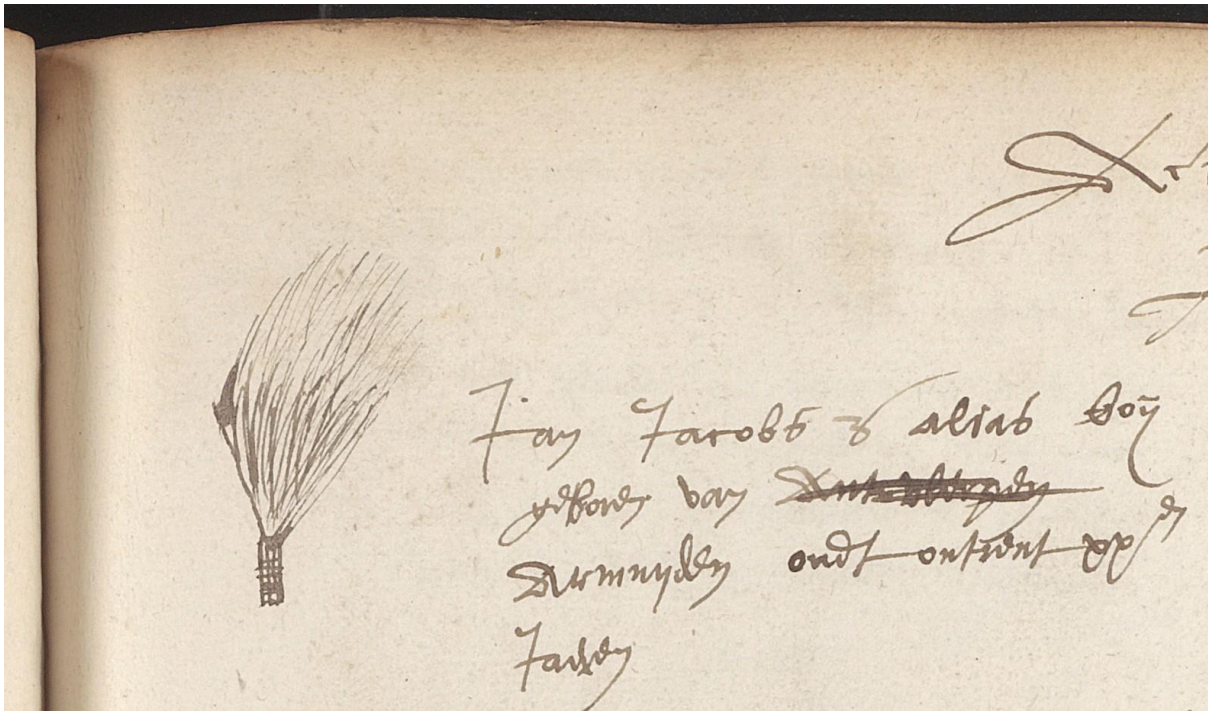 Jan Jacobss alias boÿ
geboren van
Armuyden oudt ontrent xxen
Jaeren